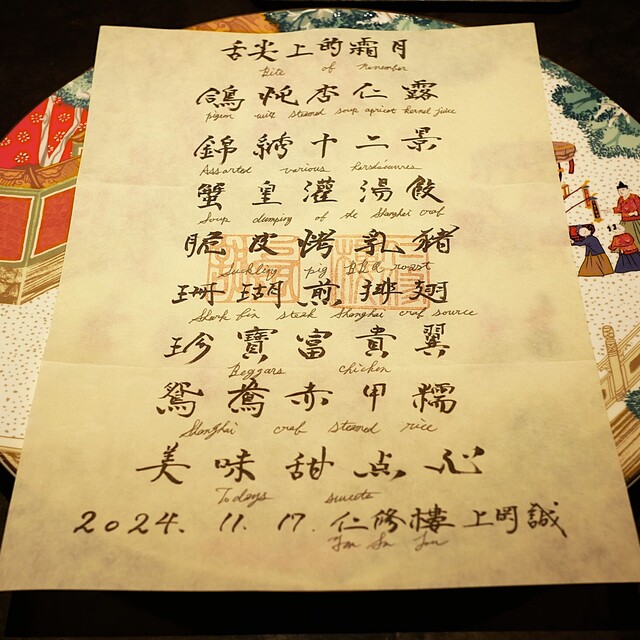 舌尖上的霜月
Bite of November
鴿炖杏仁露
pigeon with steamed soup apricot kernel juice
錦繍十二景
Assorted various horsdœuvres
蟹皇灌湯餃
Soup dumping of the Shanghai crab
脆皮烤乳猪
Suckling pig BBQ roast
珊瑚煎排翅
Shark fin steak Shanghai crab source
珍寶富貴翼
Beggars chicken
鴛鴦赤甲糯
Shanghai crab steamed rice
美味甜点心
Todays sweets
2024. 11. 17. 仁修樓 上岡誠